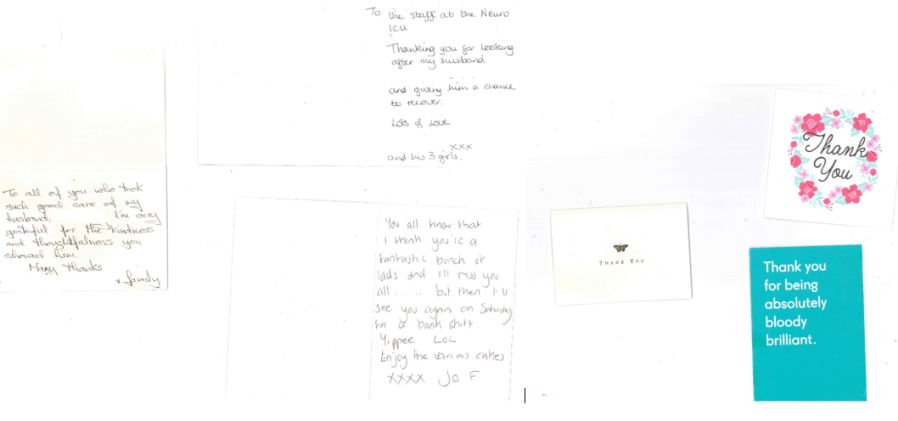 To the staff at the Neuro
ICU
Thanking you for looking
after my husband
and giving him a chance
to recover.
Lots of Love
xxx
and his 3 girls.
To all of you who took
such good care of my
husband, I'm very
grateful for the kindness
and thoughtfulness you
showed him.
Many thanks
+ family
You all know that
I think you're a
fantastic bunch of
lads and I'll miss you
all ...... but then I'll
see you again on
for a bank shift.
Yippee LOL
Enjoy the various cakes
xxxx Jo F
THANK YOU
Thank
You
Thank you
for being
absolutely
bloody
brilliant.